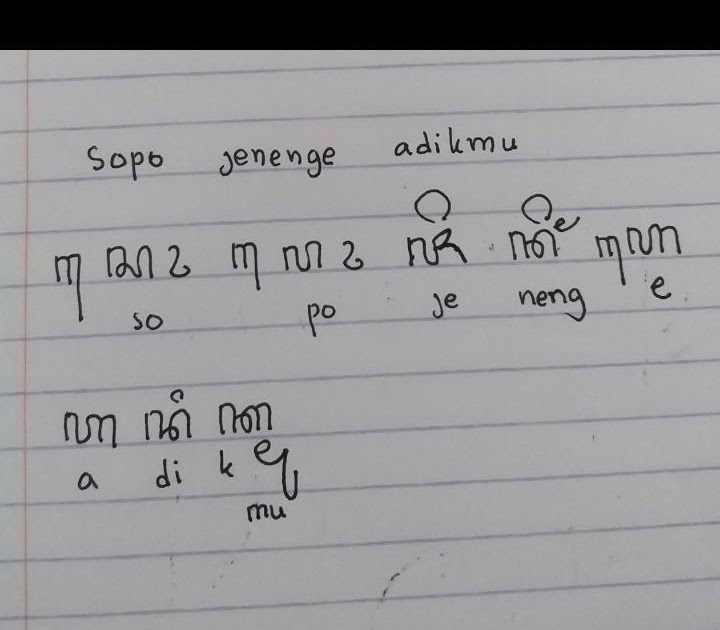 Sopo jenenge adikmu
ꦱꦺꦴ ꦥꦺꦴ ꦗꦼ ꦤꦼꦁ ꦲꦺ
so po je neng e
ꦲ ꦢꦶ ꦏ꧀ꦩꦸ
a di k
mu